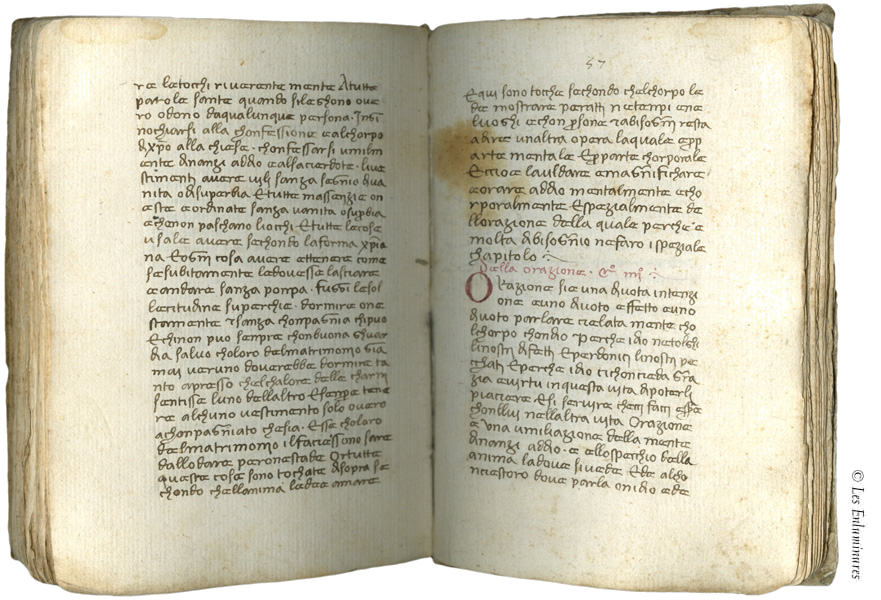 re letochi riverente mente Atutte
parole sante quando sileghono ove
ro odono daqualunque persona. Ingi
nochiarsi alla chonfessione e alchorpo
dxpo alla chiesa. chonfessarsi umilm
ente dinanzi addio e alsacierdote. live
stimenti avere vili sanza segnio diva
nita odisuperbia E tutte massenzie on
este e ordinate sanza vanita osuperbia
echenon paschano liocchi E tutte le cose
usale avere sechondo laforma xpia
na Eogni cosa avere ettenere come
sesubitamente ledovesse lasciare
e andare sanza pompa. fuggi lesol
lecitudine superchie. dormire one
stamente e sanza chonpagnia chipuo
Echinon puo sempre chonbuona ghuar
dia salvo choloro delmatrimonio gia
mai veruno doverebbe dormire ta
nto apresso chelchalore delle charni
sentisse luno dellaltro E senpre tene
re alchuno vestimento solo overo
achonpagniato chesia. Esse choloro
delmatrimonio il faciessono sare
dallodare peronestade Ortutte
queste cose sono tochate disopra se
chondo chellanima ledee amare
57
Equi sono toche sechondo chelchorpo le
dee mostrare peratti netempi ene
luoghi echon persone e abisognio resta
adire unaltra opera laquale e per
arte mentale E perparte chorporale
Eccioe laudare emagnifichare
e orare addio mentalmente e cho
rporalmente Espezialmente de
llorazione della quale perche e
molta abisognio nefaro ispeziale
chapitolo
Della orazione.
Orazione sie una divota intenzi
one e uno divoto effetto e uno
divoto parlare cielata mente cho
lchorpo chondio Perche idio netolghi
linostri difetti Eperdonici linostri pe
chati Eperche idio cichoncieda gra
zia e virtu inquesta vita dipoterli
piaciere E si servire
chonllui nellaltra vita Orazione
e una umiliazione della mente
dinanzi addio. e ellospechio della
anima ladove sivede Ede aldo
nciestoro dove parla onidio ede
© Les Enluminures